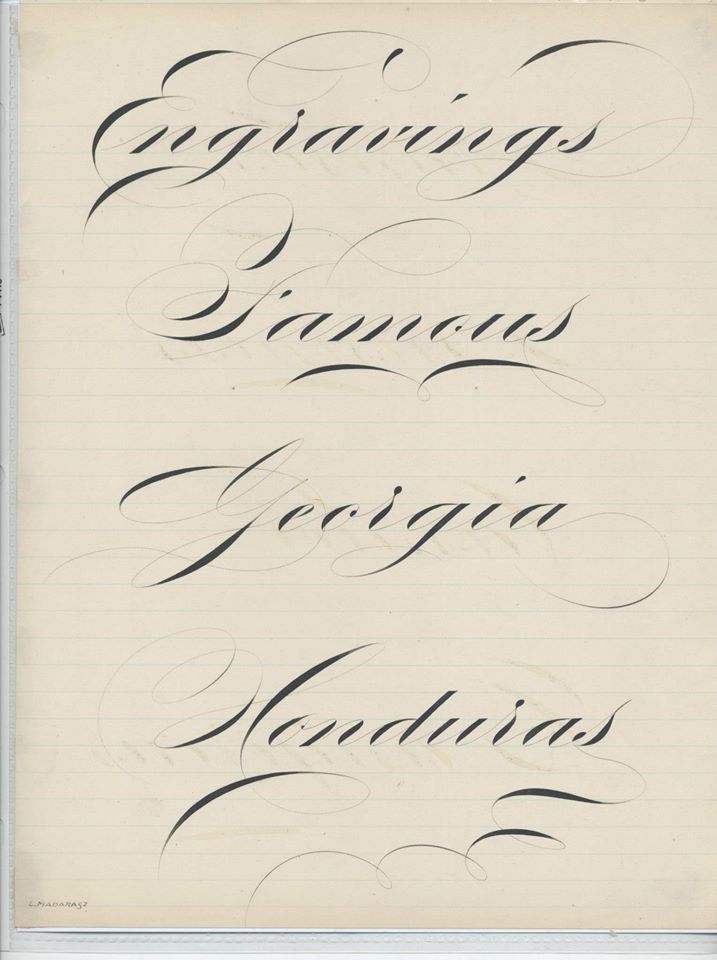 Engravings
Famous
Georgia
Honduras
L. MADARASZ